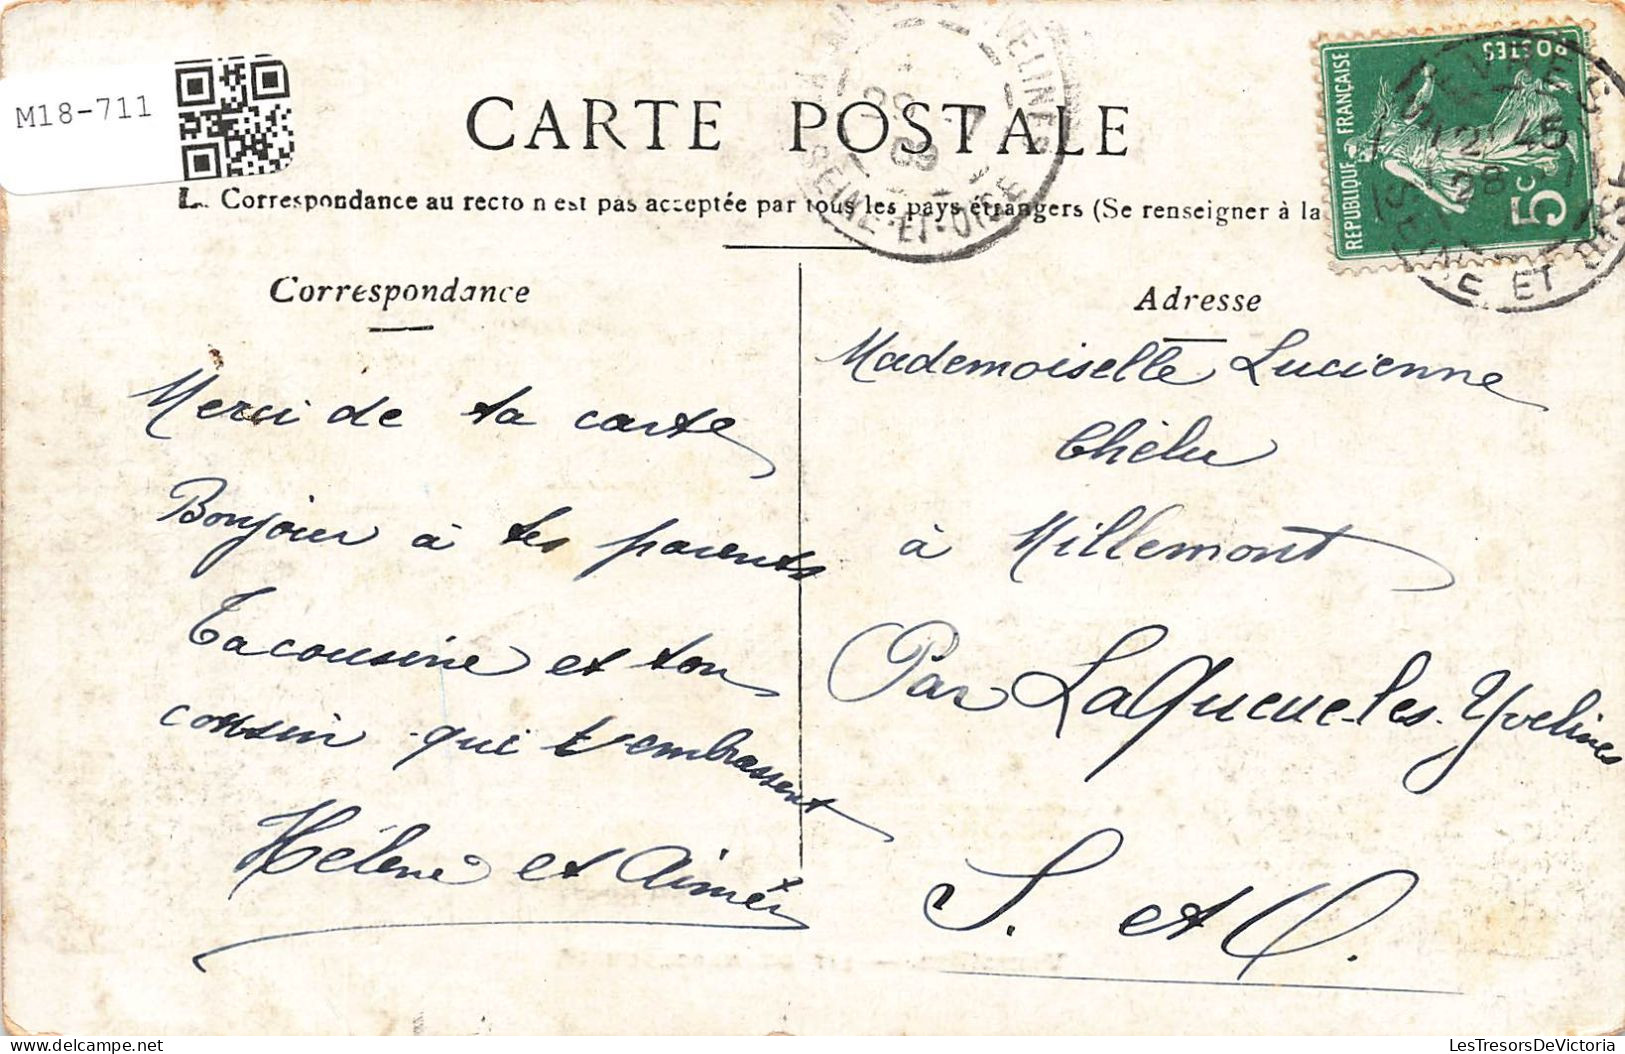 M18-711
CARTE POSTALE
L. Correspondance au recto n'est pas acceptée par tous les pays étrangers (Se renseigner à la
REPUBLIQUE FRANÇAISE
POSTES
5c
28 -7
09
SEINE-ET-OISE
12 45
28
SEINE ET OISE
Correspondance
Merci de ta carte
Bonjour à tes parents
Ta cousine et ton
cousin qui t'embrassent
Hélène et Aimé
Adresse
Mademoiselle Lucienne
Chélu
à Millemont
Par La Queue-les-Yvelines
S. et O.
LesTresorsDeVictoria
delcampe.net